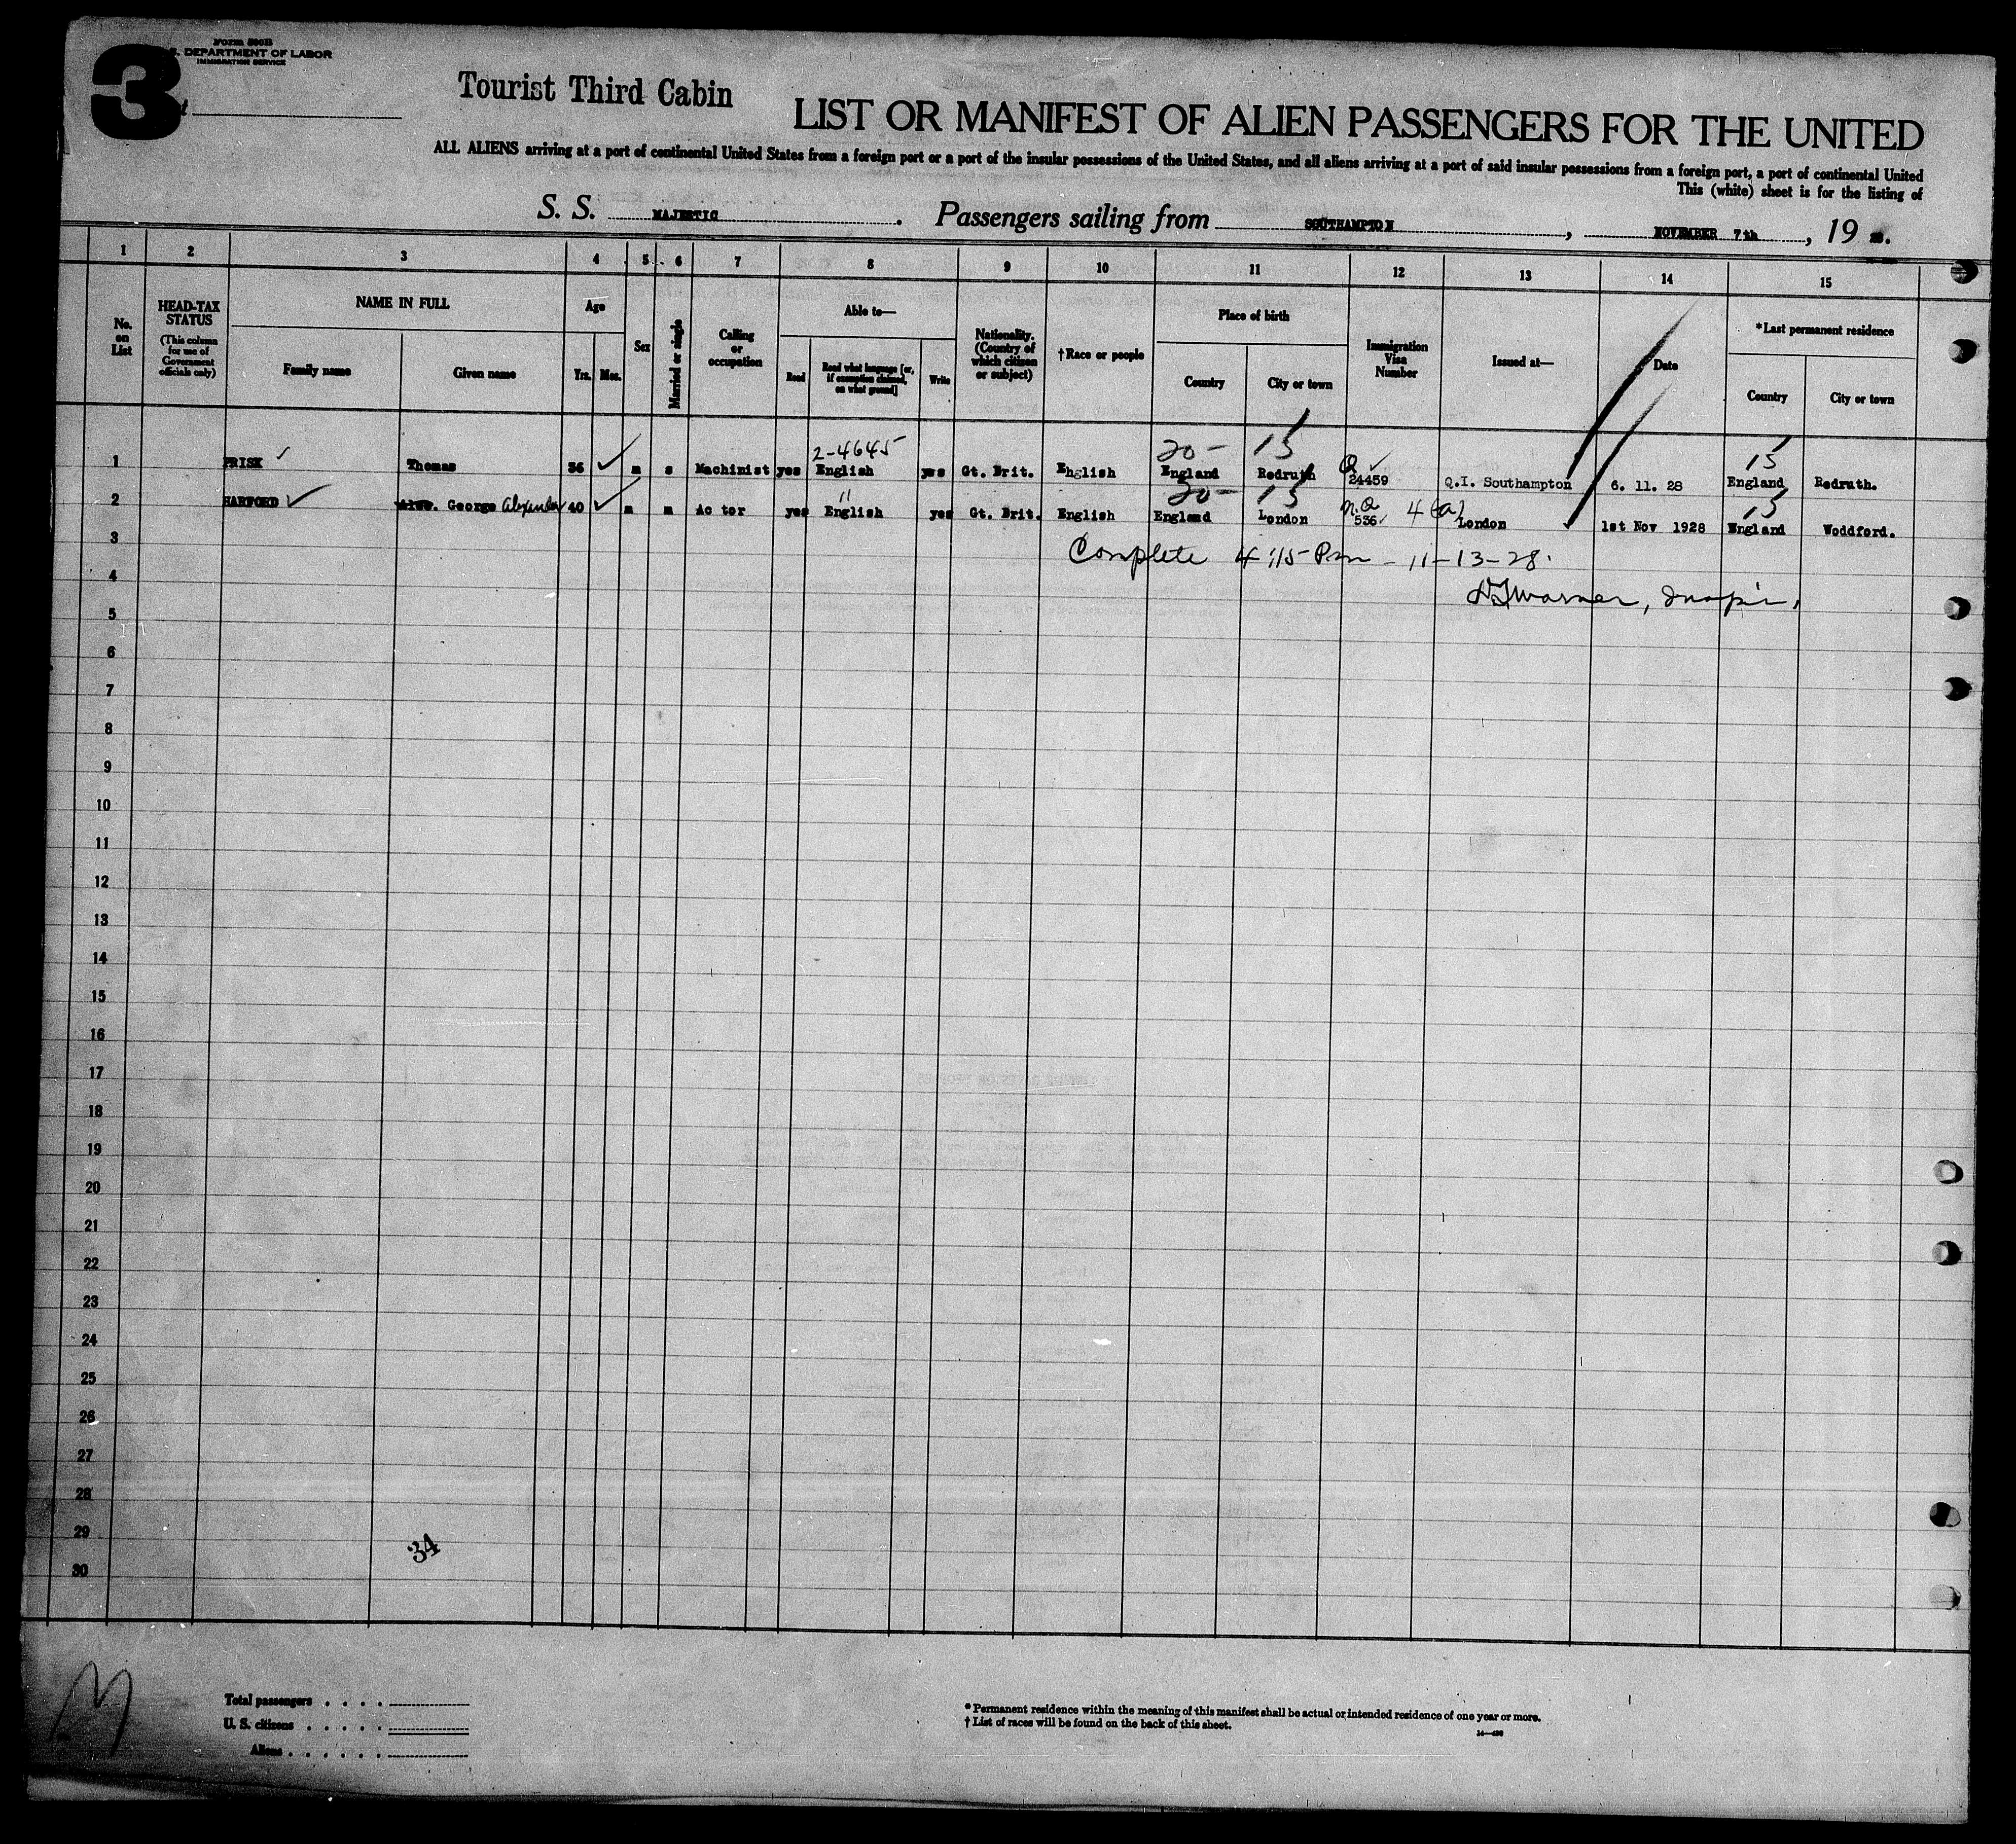 3
Form 500B
DEPARTMENT OF LABOR
IMMIGRATION SERVICE
Tourist Third Cabin
LIST OR MANIFEST OF ALIEN PASSENGERS FOR THE UNITED
ALL ALIENS arriving at a port of continental United States from a foreign port or a port of the insular possessions of the United States, and all aliens arriving at a port of said insular possessions from a foreign port, a port of continental United
This (white) sheet is for the listing of
S. S. MAJESTIC. Passengers sailing from SOUTHAMPTON, NOVEMBER 7th, 19
1 2 3 4 5 6 7 8 9 10 11 12 13 14 15
No. on List
HEAD-TAX STATUS (This column for use of Government officials only)
NAME IN FULL
Family name
Given name
Age
Yrs. Mos.
Sex
Married or single
Calling or occupation
Able to—
Read
Read what language [or, if exemption claimed, on what ground]
Write
Nationality. (Country of which citizen or subject)
†Race or people
Place of birth
Country
City or town
Immigration Visa Number
Issued at—
Date
*Last permanent residence
Country
City or town
2-4645 20- 15 Q 15
1 PRISK Thomas 36 m s Machinist yes English yes Gt. Brit. English England Redruth 24459 Q.I. Southampton 6. 11. 28 England Redruth.
" 20- 15 n.Q 4(a) 15
2 HARFORD Alex. George Alexander 40 m m Ac tor yes English yes Gt. Brit. English England London 536 London 1st Nov 1928 England Woddford.
3 Complete 4:15 Pm - 11-13-28.
4 Warner, Insp'r.
5
6
7
8
9
10
11
12
13
14
15
16
17
18
19
20
21
22
23
24
25
26
27
28
29
30
34
M
Total passengers
U. S. citizens
Aliens
* Permanent residence within the meaning of this manifest shall be actual or intended residence of one year or more.
† List of races will be found on the back of this sheet.